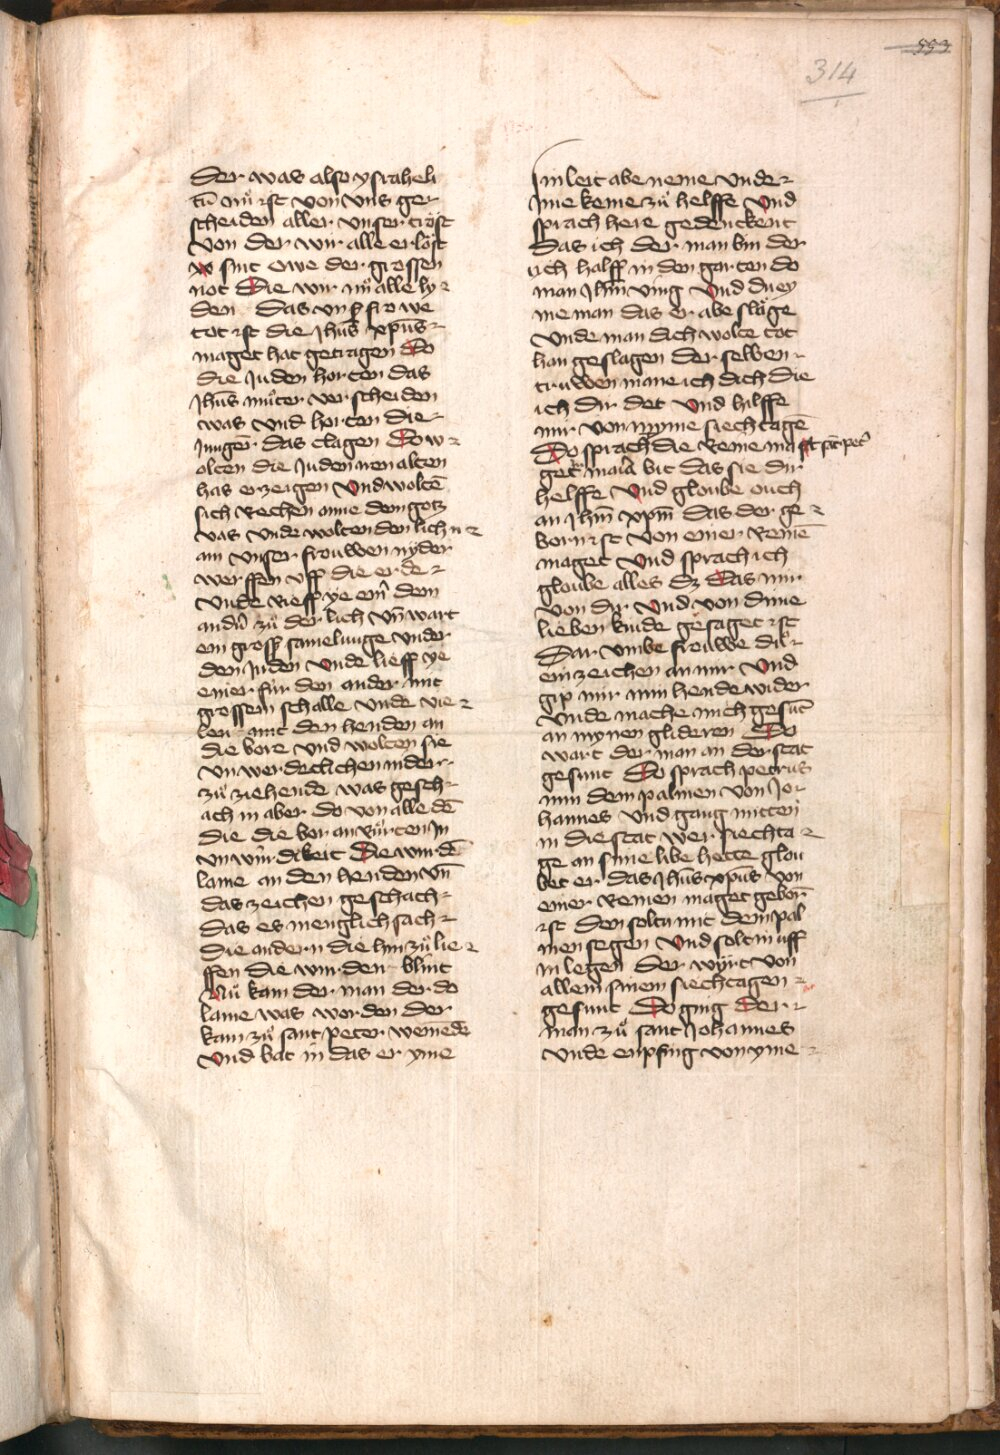 553
314
Der was also ysraheli
tū nuͦ ist von vns ger
scheiden aller vnser troͤst
von der wir alle erloͤst
sint owe der grossen
not Die wir nuͦ alle ly
den Das vnß frowe
tot ist die Jhūs xpūs
maget hat getragen Do
die Juden horten das
Jhūs muͦter verscheiden
was vnd horten die
Jungēr das clagen Do w
olten die Juden iren alten
has erzeigen Vnd woltē
sich Rechen anne dem gotz
vas vnde wolten den lichn
am vnser frouwen nyder
werffen vff die erde
vnde rieff ye eīn dem
andn̄ zuͦ der lich vn̄ wart
ein groß samelunge vnder
den Juden vnde lieff ye
einer fuͤr den ander mit
grossem schalle vnde vie
len mit den henden an
die bore vnd wolten sie
vnwerdeclichen nider
zuͦ ziehende was gesch
ach in aber do von alle dē
die die bor anruͦrten Jn
vnwirdikeit Die wurdē
lame an den henden vn̄
das zeichen geschach
das es menglich sach
die andern die hin zuͦ lie
ffen die wurden blint
Nuͦ kam der man der do
lame was worden der
kam zuͦ sant peter wenēde
Vnd bat in das er yme
Sin leit abe neme vnde
ime keme zuͦ helffe Vnd
sprach here gedenckent
das ich der man bin der
uch halff in den garten do
man Jhm̄ ving Vnd
me man das er abe sluͦge
vnde man dich wolte tot
han geslagen der selben
truwen mane ich dich die
ich dir det Vnd hilffe
mir von myme siechtagē
Do sprach die Reine ma st pet
get maiā bit das sie dir
helffe Vnd gloube ouch
an Jhm̄ xpm̄ das der ge
born ist von einer Reinē
maget Vnd sprach ich
gloube alles dz Das mir
von dir Vnd von dime
lieben kinde gesaget ist
Dar vmbe frouwe duͦ
ein zeichen an mir Vnd
gip mir min hende wider
vnde mache mich gesūt
an mynen glideren Do
wart der man an der stat
gesunt Do sprach petrus
nim dem palmen von Jo
hannes Vnd gang mitten
in die stat wer siechta
ge an sime libe hette glou
bet er das Jhūs xpūs von
einer Reinen maget geborn̄
ist den soltu mit dem pal
men segen Vnd solt in vff
in legen der wyrt von
allem sinem siechtagen
gesunt Do ging der
man zuͦ sant Johannes
vnde enpfing von yme